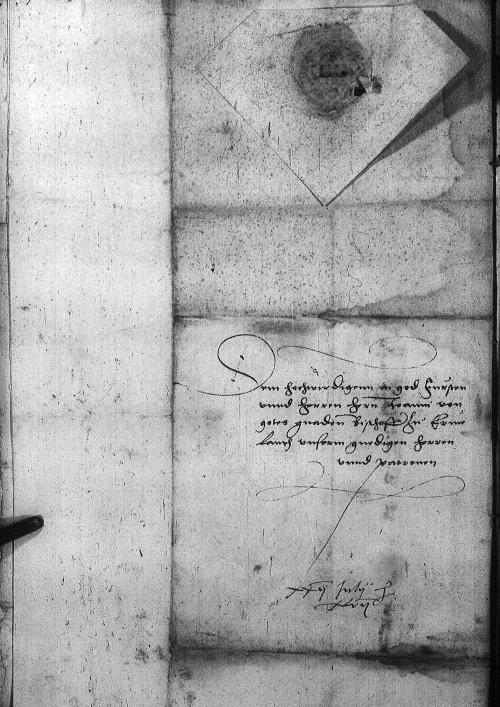 Dem hochwirdigenn in god Fursten
vnnd herren hern Joanni von
gotes gnaden Bischoff zu Erme
landt vnserm gnedigen herren
vnnd patronen
Julij